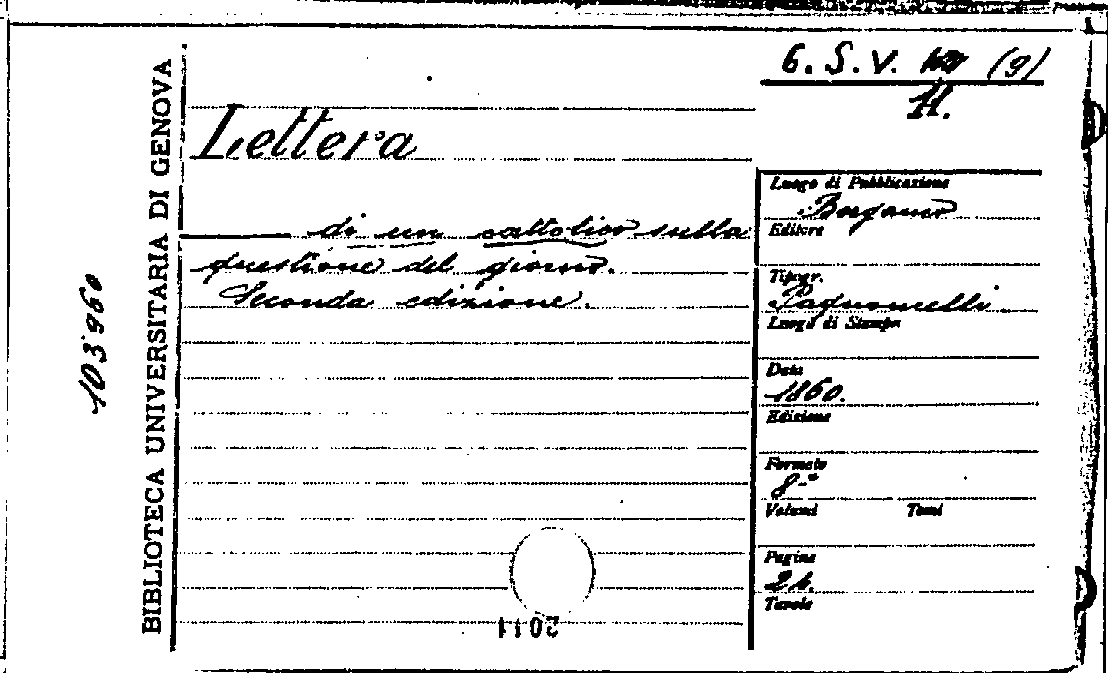 BIBLIOTECA UNIVERSITARIA DI GENOVA
103960
6. S. V. (9)
H.
Lettera
di un cattolico sulla
questione del giorno.
Seconda edizione.
Luogo di Pubblicazione
Bergamo
Editore
Tipogr.
Pagnoncelli
Luogo di Stampa
Data
1860.
Edizione
Formato
8-º
Volumi Tomi
Pagine
24.
Tavole
2011